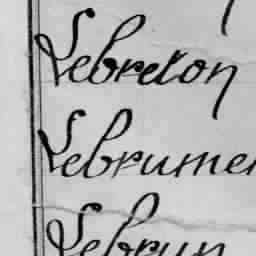 Lebreton
Lebrumen
Lebrun